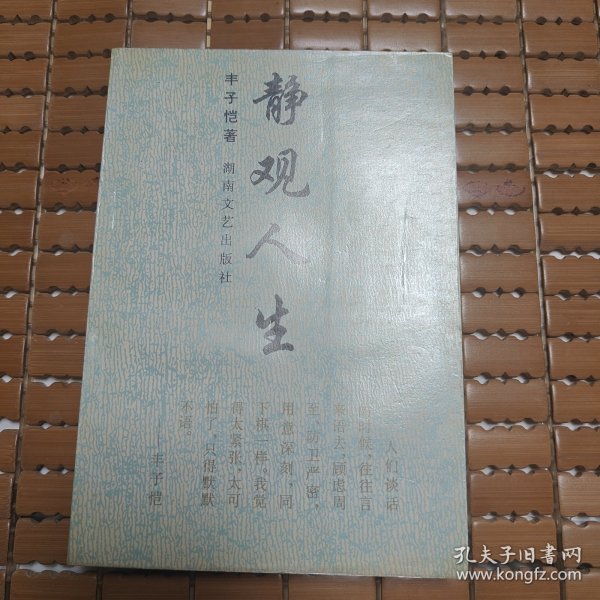 静观人生
丰子恺著
湖南文艺出版社
人们谈话
的时候，往往言
来语去，顾虑周
至，防卫严密，
用意深刻，同
下棋一样。我觉
得太紧张，太可
怕了，只得默默
不语。
——丰子恺
孔夫子旧书网
www.kongfz.com